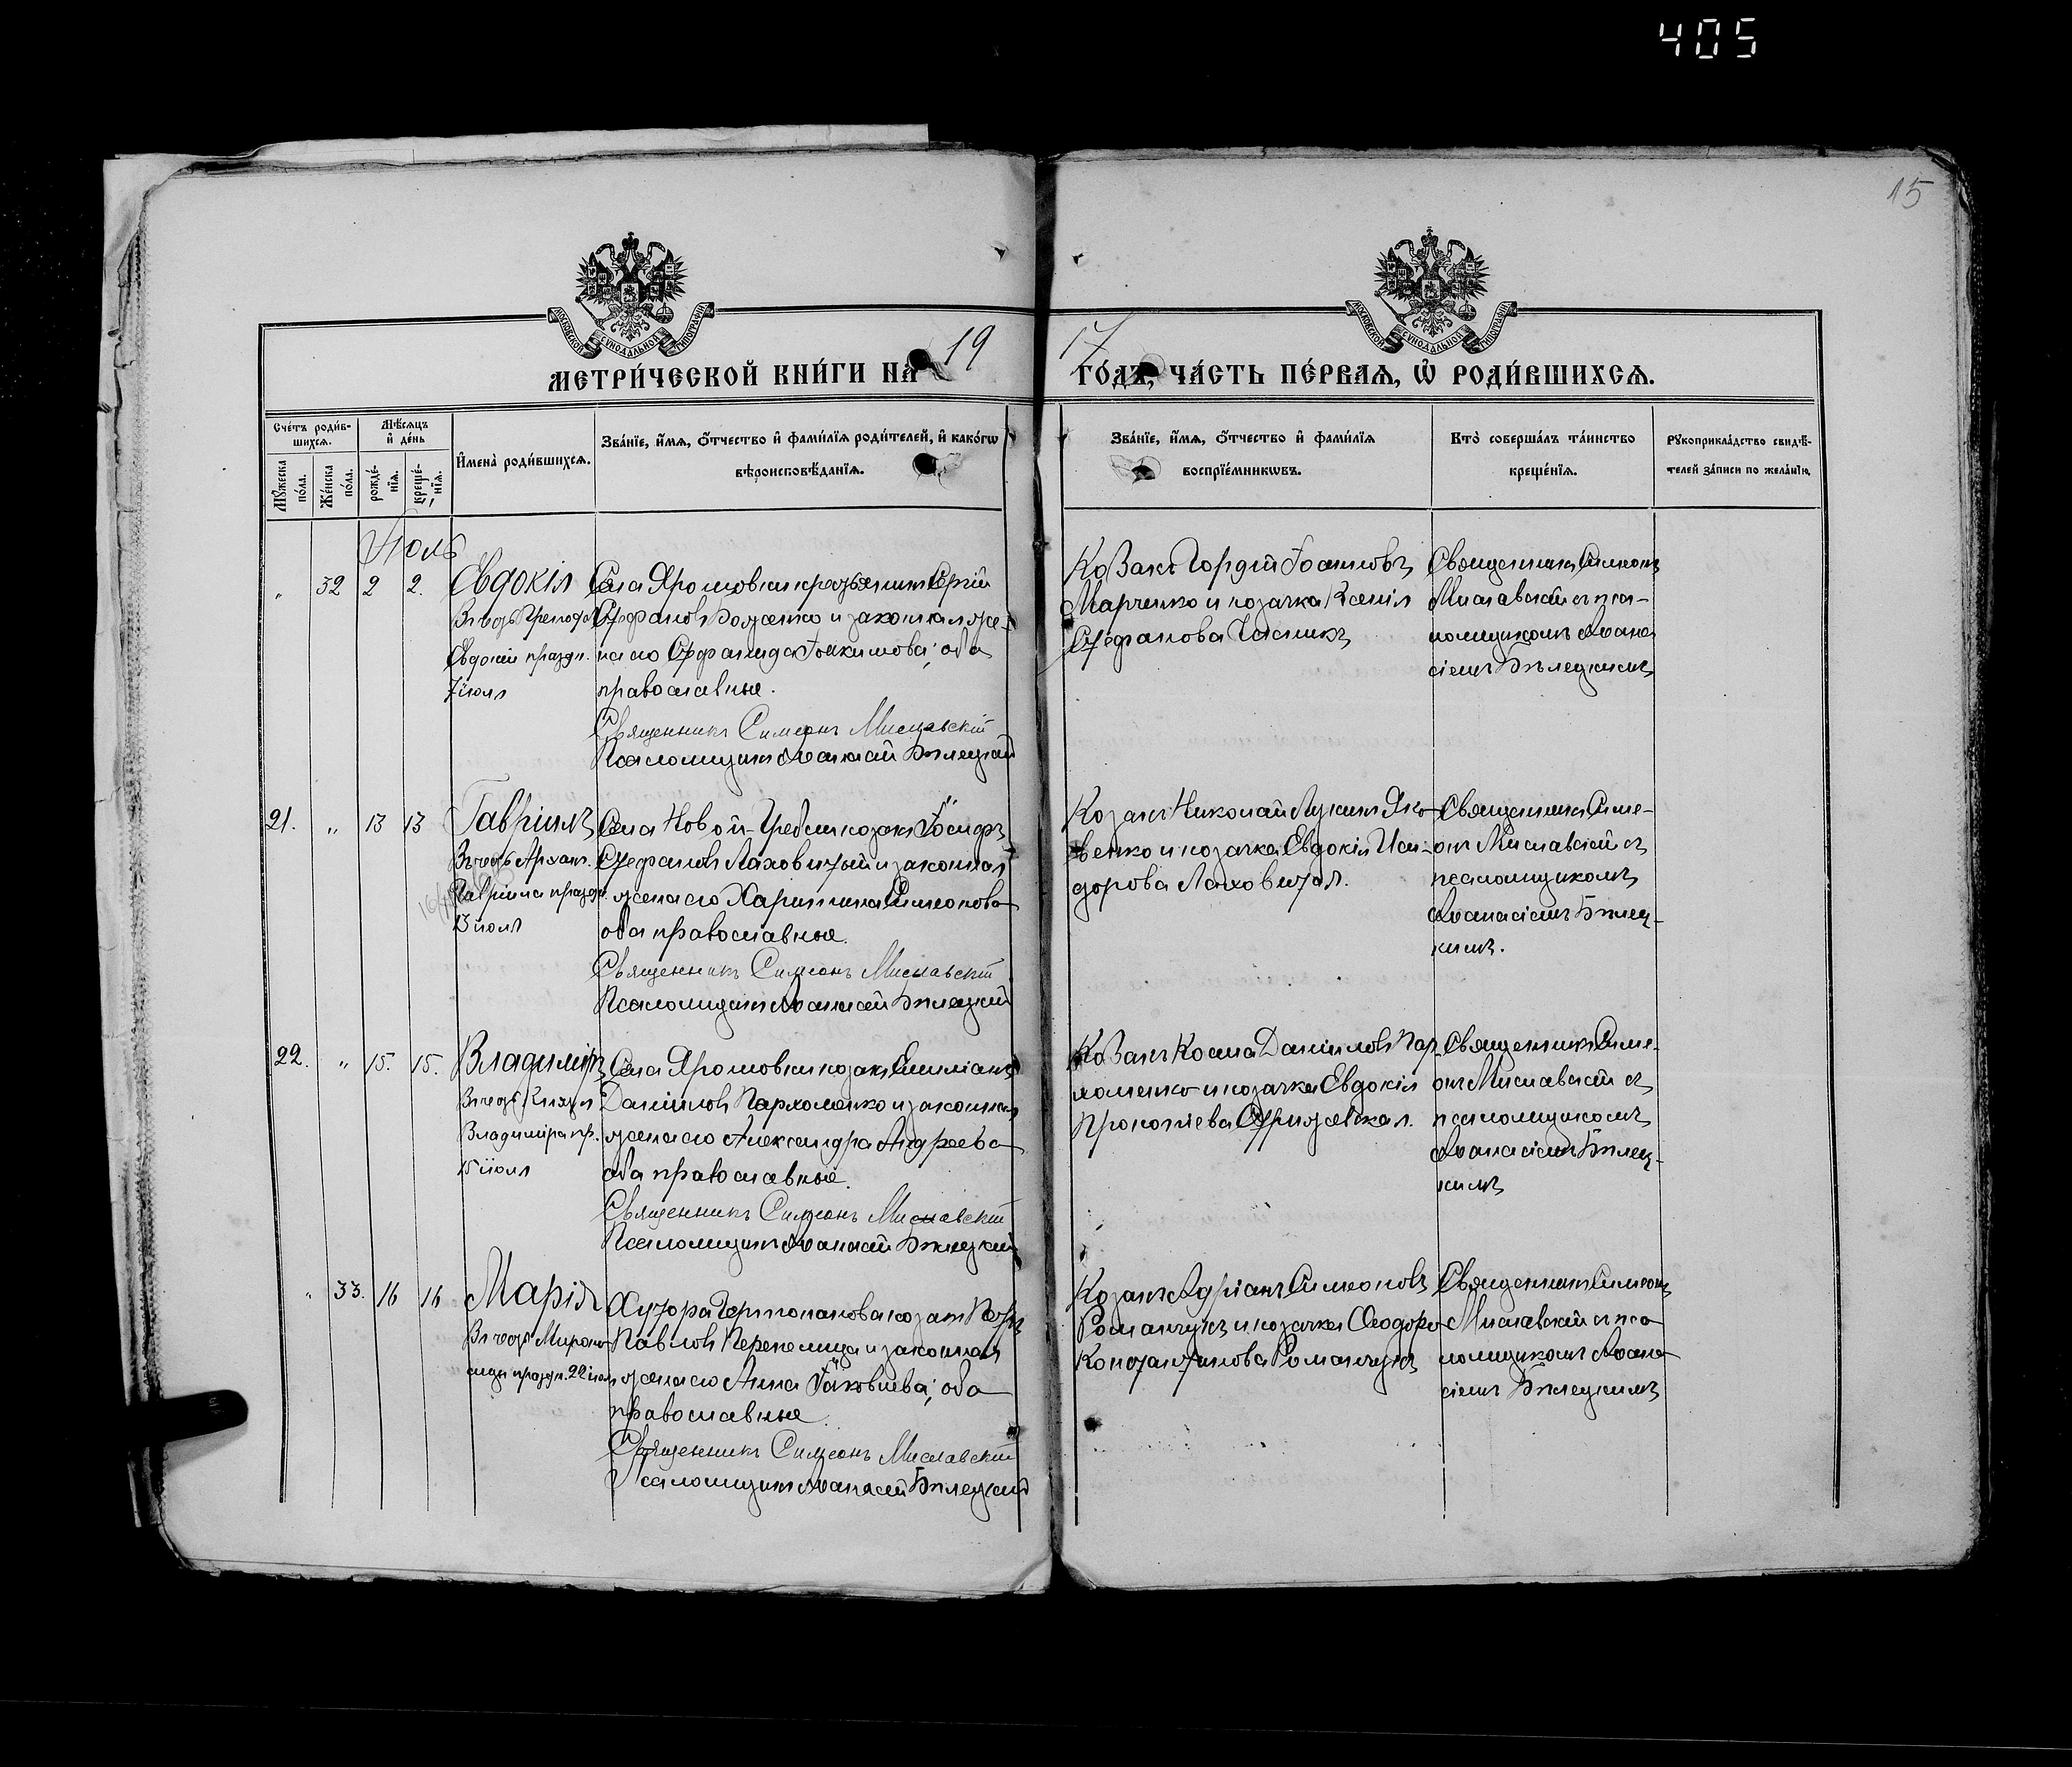 405
15
МОСКОВСКОЙ СѴНОДАЛЬНОЙ ТИПОГРАФІИ
МОСКОВСКОЙ СѴНОДАЛЬНОЙ ТИПОГРАФІИ
МЕТРИ́ЧЕСКОЙ КНИ́ГИ НА 19
17 ГО́ДЪ, ЧА́СТЬ ПЕ́РВАЯ, Ѽ РОДИ́ВШИХСЯ.
Сче́тъ роди́вшихся.
Мꙋ́жеска по́ла.
Же́нска по́ла.
Мѣ́сяцъ и҆ де́нь
рожде́нїя.
креще́нїя.
И҆мена̀ роди́вшихся.
Зва́нїе, и҆́мя, ѻ҆́тчество и҆ фами́лїя роди́телей, и҆ како́гѡ
вѣроисповѣ́данїя.
Зва́нїе, и҆́мя, ѻ҆́тчество и҆ фами́лїя
воспрїе́мникѡвъ.
Кто̀ соверша́лъ та́инство
креще́нїя.
Рꙋкоприкла́дство свидѣ́-
телей за́писи по жела́нїю.
Іюль
„ 32 2 2.
Евдокія
Въ честь Препод.
Евдокіи праздн.
7 іюля
Села Ярошовки крестьянинъ Сергій
Стефановъ Боженко и законная же-
на его Стефанида Іоакимова; оба
православные.
Священникъ Симеонъ Миславскій
Псаломщикъ Аѳанасій Бѣлецкій
Козакъ Гордій Іоанновъ
Марченко и козачка Ксенія
Стефанова
Священникъ Симеонъ
Миславскій съ пса-
ломщикомъ Аѳана-
сіемъ Бѣлецкимъ
21. „ 13 13
Гавріилъ
Въ честь Архан.
Гавріила праздн.
13 іюля
Села Новой-Гребли козакъ Іосифъ
Стефановъ Лаховитый и законная
жена его Харитина Симеонова
оба православные.
Священникъ Симеонъ Миславскій
Псаломщикъ Аѳанасій Бѣлецкій
Козакъ Николай Лукинъ Яко-
венко и козачка Евдокія Иси-
дорова Лаховитая.
Священникъ Симе-
онъ Миславскій съ
псаломщикомъ
Аѳанасіемъ Бѣлец-
кимъ.
22. „ 15. 15.
Владиміръ
Въ честь Князя
Владиміра пр.
15 іюля
Села Ярошовки козакъ Емиліанъ
Даніиловъ Пархоменко и законная
жена его Александра Андреева
оба православные.
Священникъ Симеонъ Миславскій
Псаломщикъ Аѳанасій Бѣлецкій
Козакъ Косма Даніиловъ Пар-
хоменко и козачка Евдокія
Прокопіева Стрижевская.
Священникъ Симе-
онъ Миславскій съ
псаломщикомъ
Аѳанасіемъ Бѣлец-
кимъ
„ 33. 16 16
Марія
Въ честь Мироно-
сицы праздн. 22 іюля
Хутора козакъ Петръ
Павловъ Перепелица и законная
жена его Анна Іаковлева; оба
православные.
Священникъ Симеонъ Миславскій
Псаломщикъ Аѳанасій Бѣлецкій
Козакъ Адріанъ Симеоновъ
Романчукъ и козачка Ѳеодора
Константинова Романчукъ
Священникъ Симеонъ
Миславскій съ пса-
ломщикомъ Аѳана-
сіемъ Бѣлецкимъ